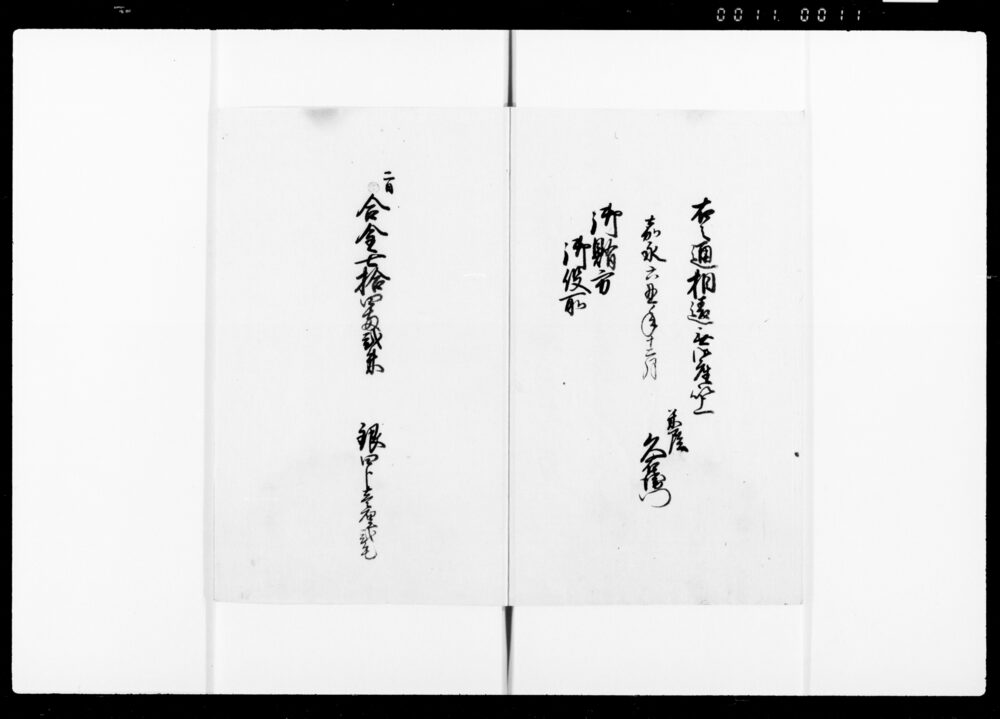 0011 0011
右之通相違無御座候以上
嘉永六丑年十二月
米屋
久右衛門
御賄方
御役所
二口
合金七拾四両弐朱
銀四匁壱厘弐毛